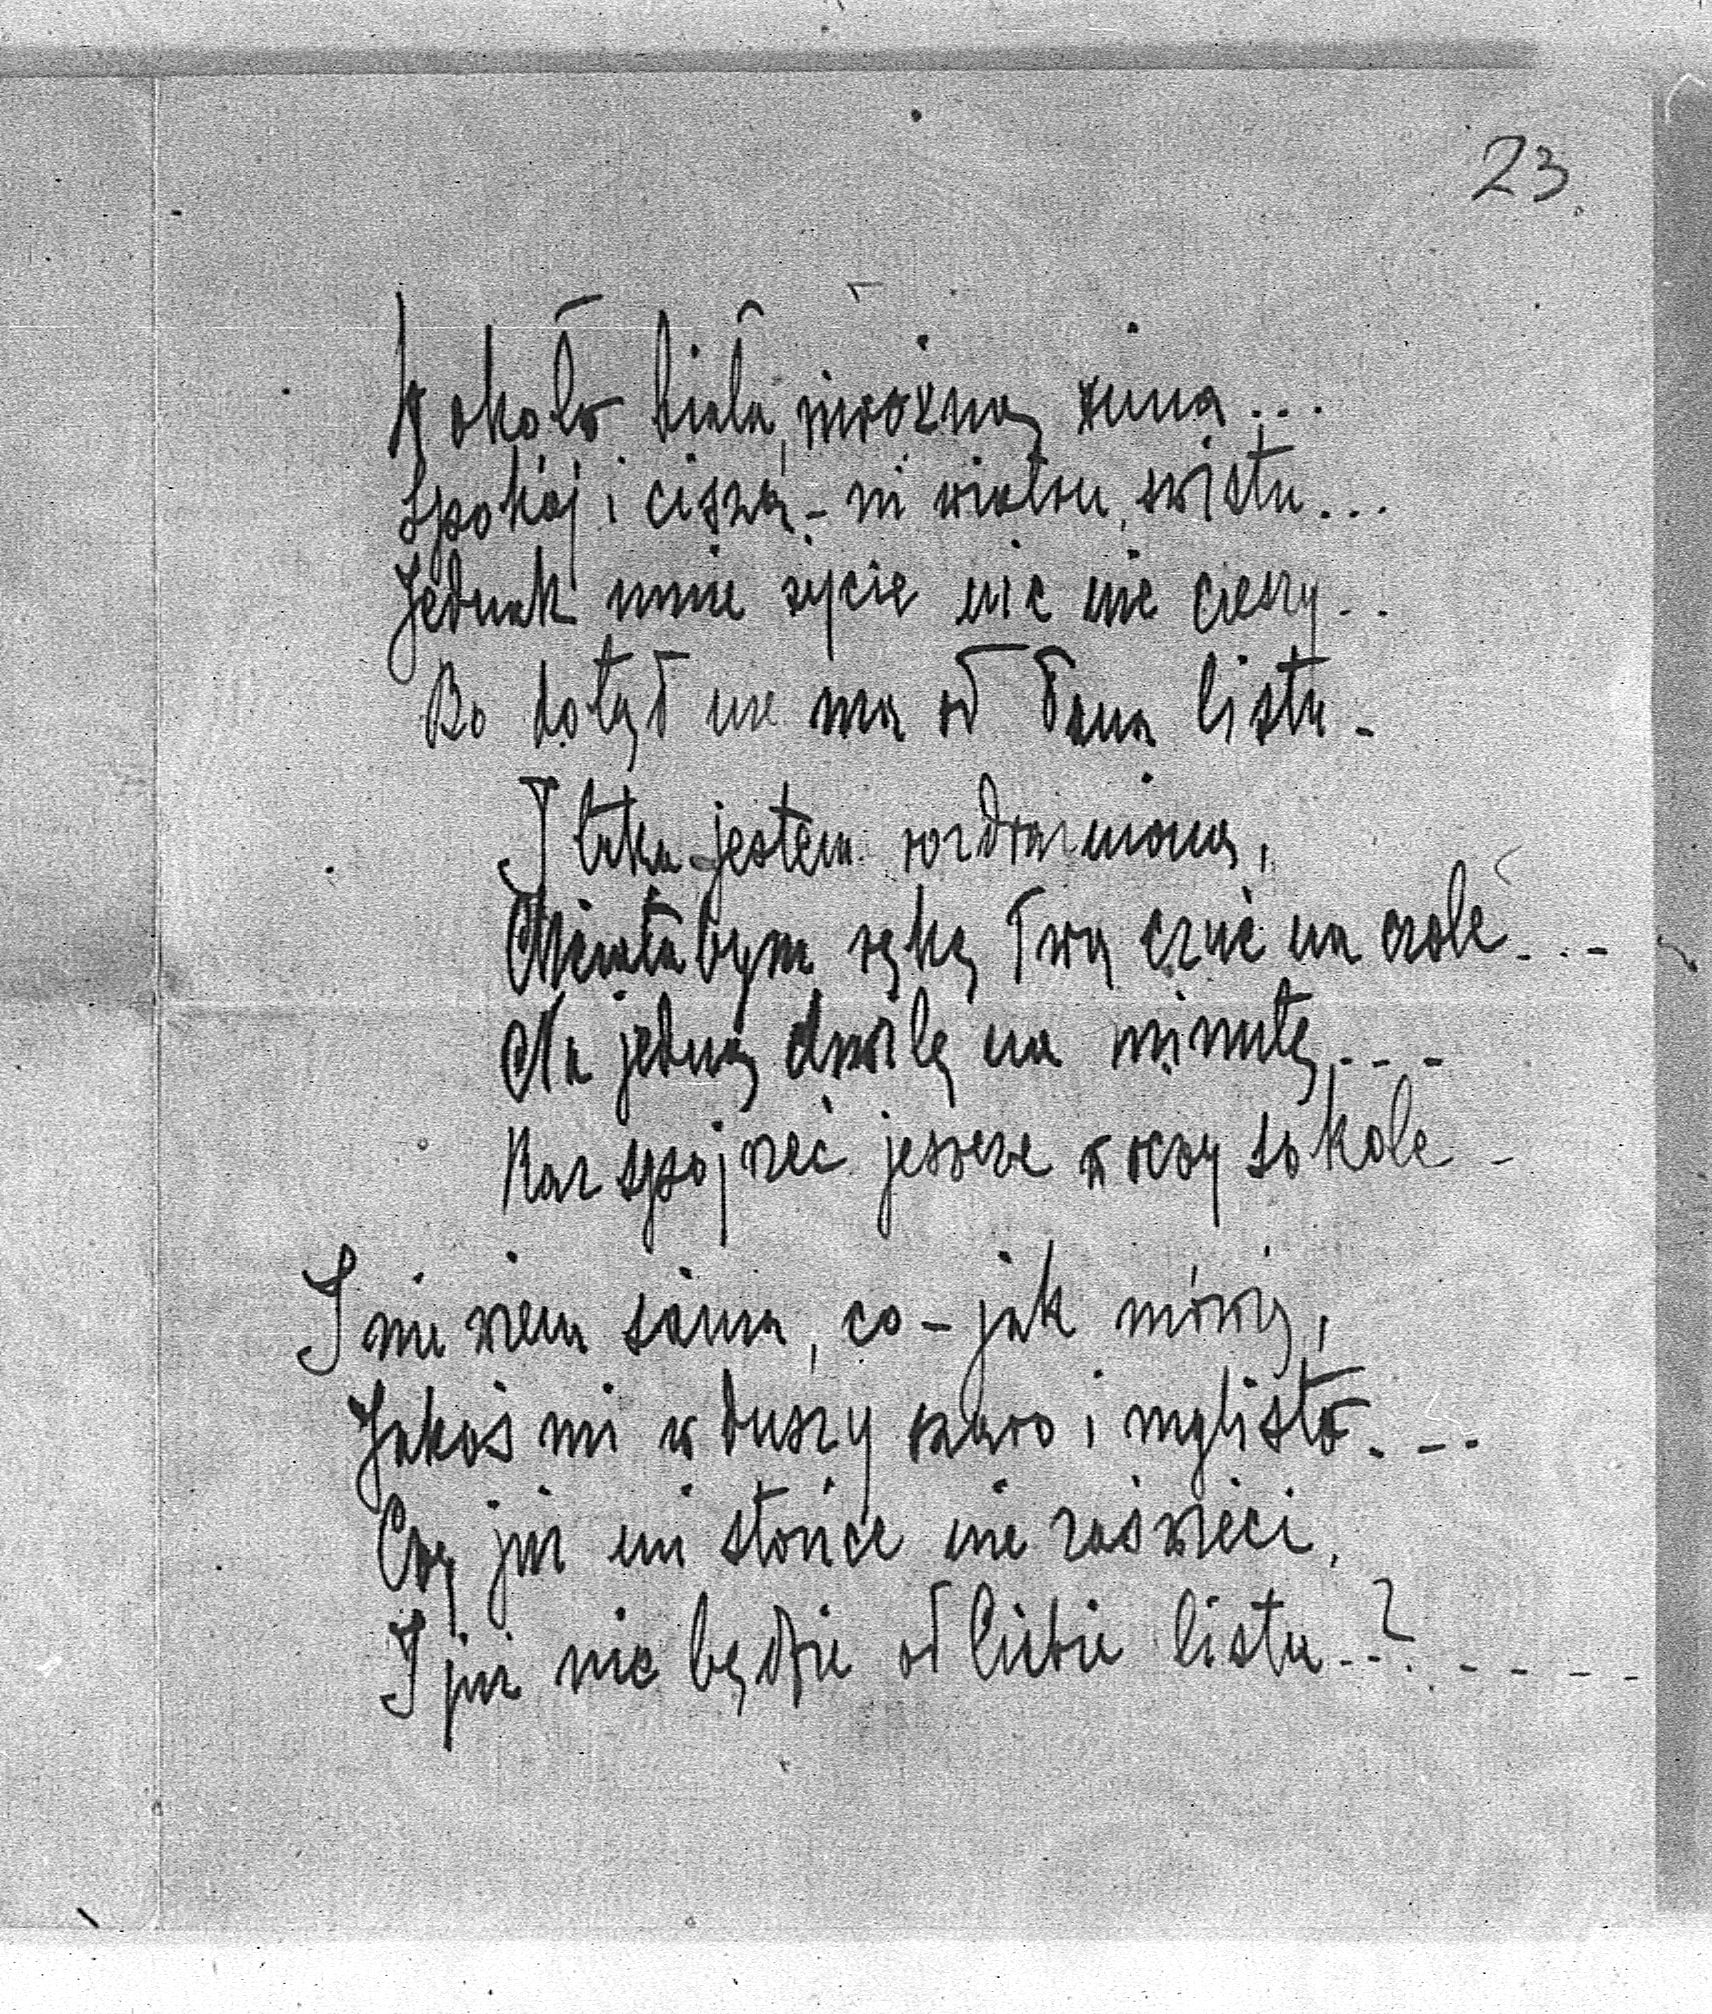 23
Wokoło biała, mroźna zima...
Spokój i cisza - ni wiatru, świstu...
Jednak mnie życie nic nie cieszy...
Bo dotąd nie ma od Pana listu -
I taka jestem rozdrażniona,
Chciałabym rękę Twą czuć na czole...
Na jedną chwilę na minutę...
Raz spojrzeć jeszcze w oczy sokole -
I nie wiem sama, co - jak mówię,
Jakoś mi w duszy szaro i mglisto...
Czy już mi słońce nie zaświeci,
I już nie będzie od Ciebie listu...?.....